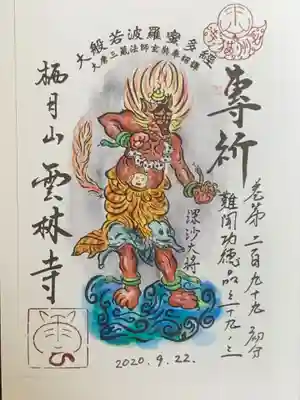 大般若波羅蜜多経
大唐三蔵法師玄奘奉詔譯
専祈
巻第二百九十九部分
難聞功徳品三十九ノ三
深沙大将
栖月山 雲林寺
2020.9.22.